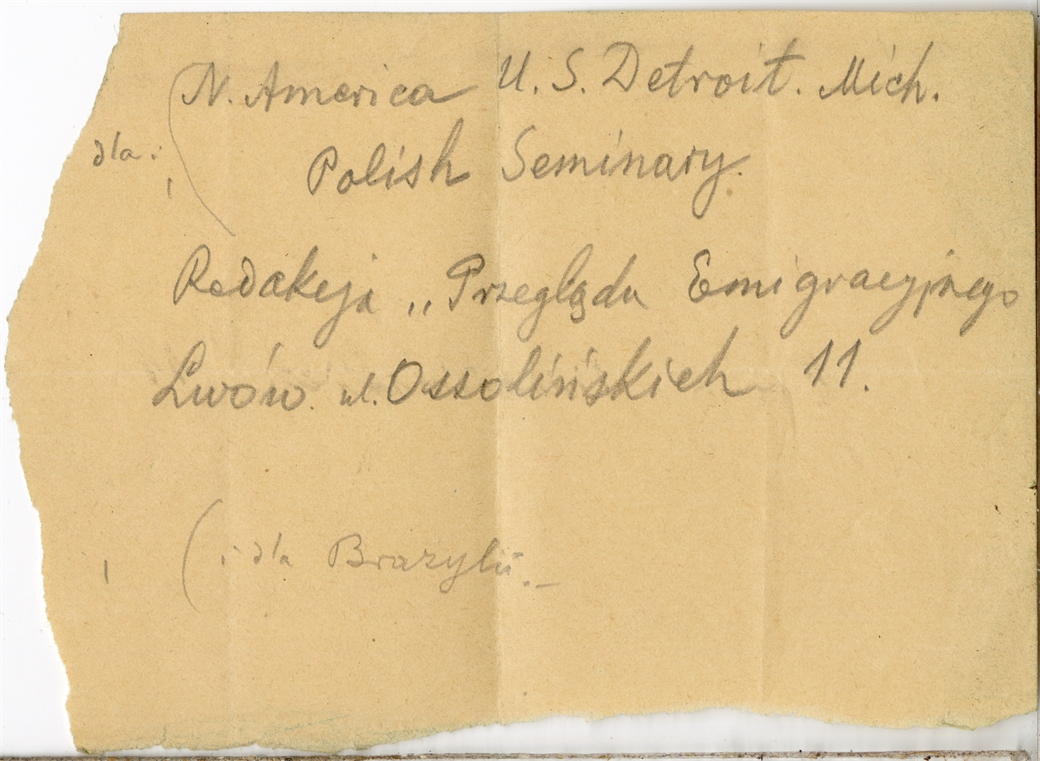 N. America U. S. Detroit. Mich.
dla:
Polish Seminary.
Redakcja „Przeglądu Emigracyjnego
Lwów. ul. Ossolińskich 11.
( i dla Brazylii. –